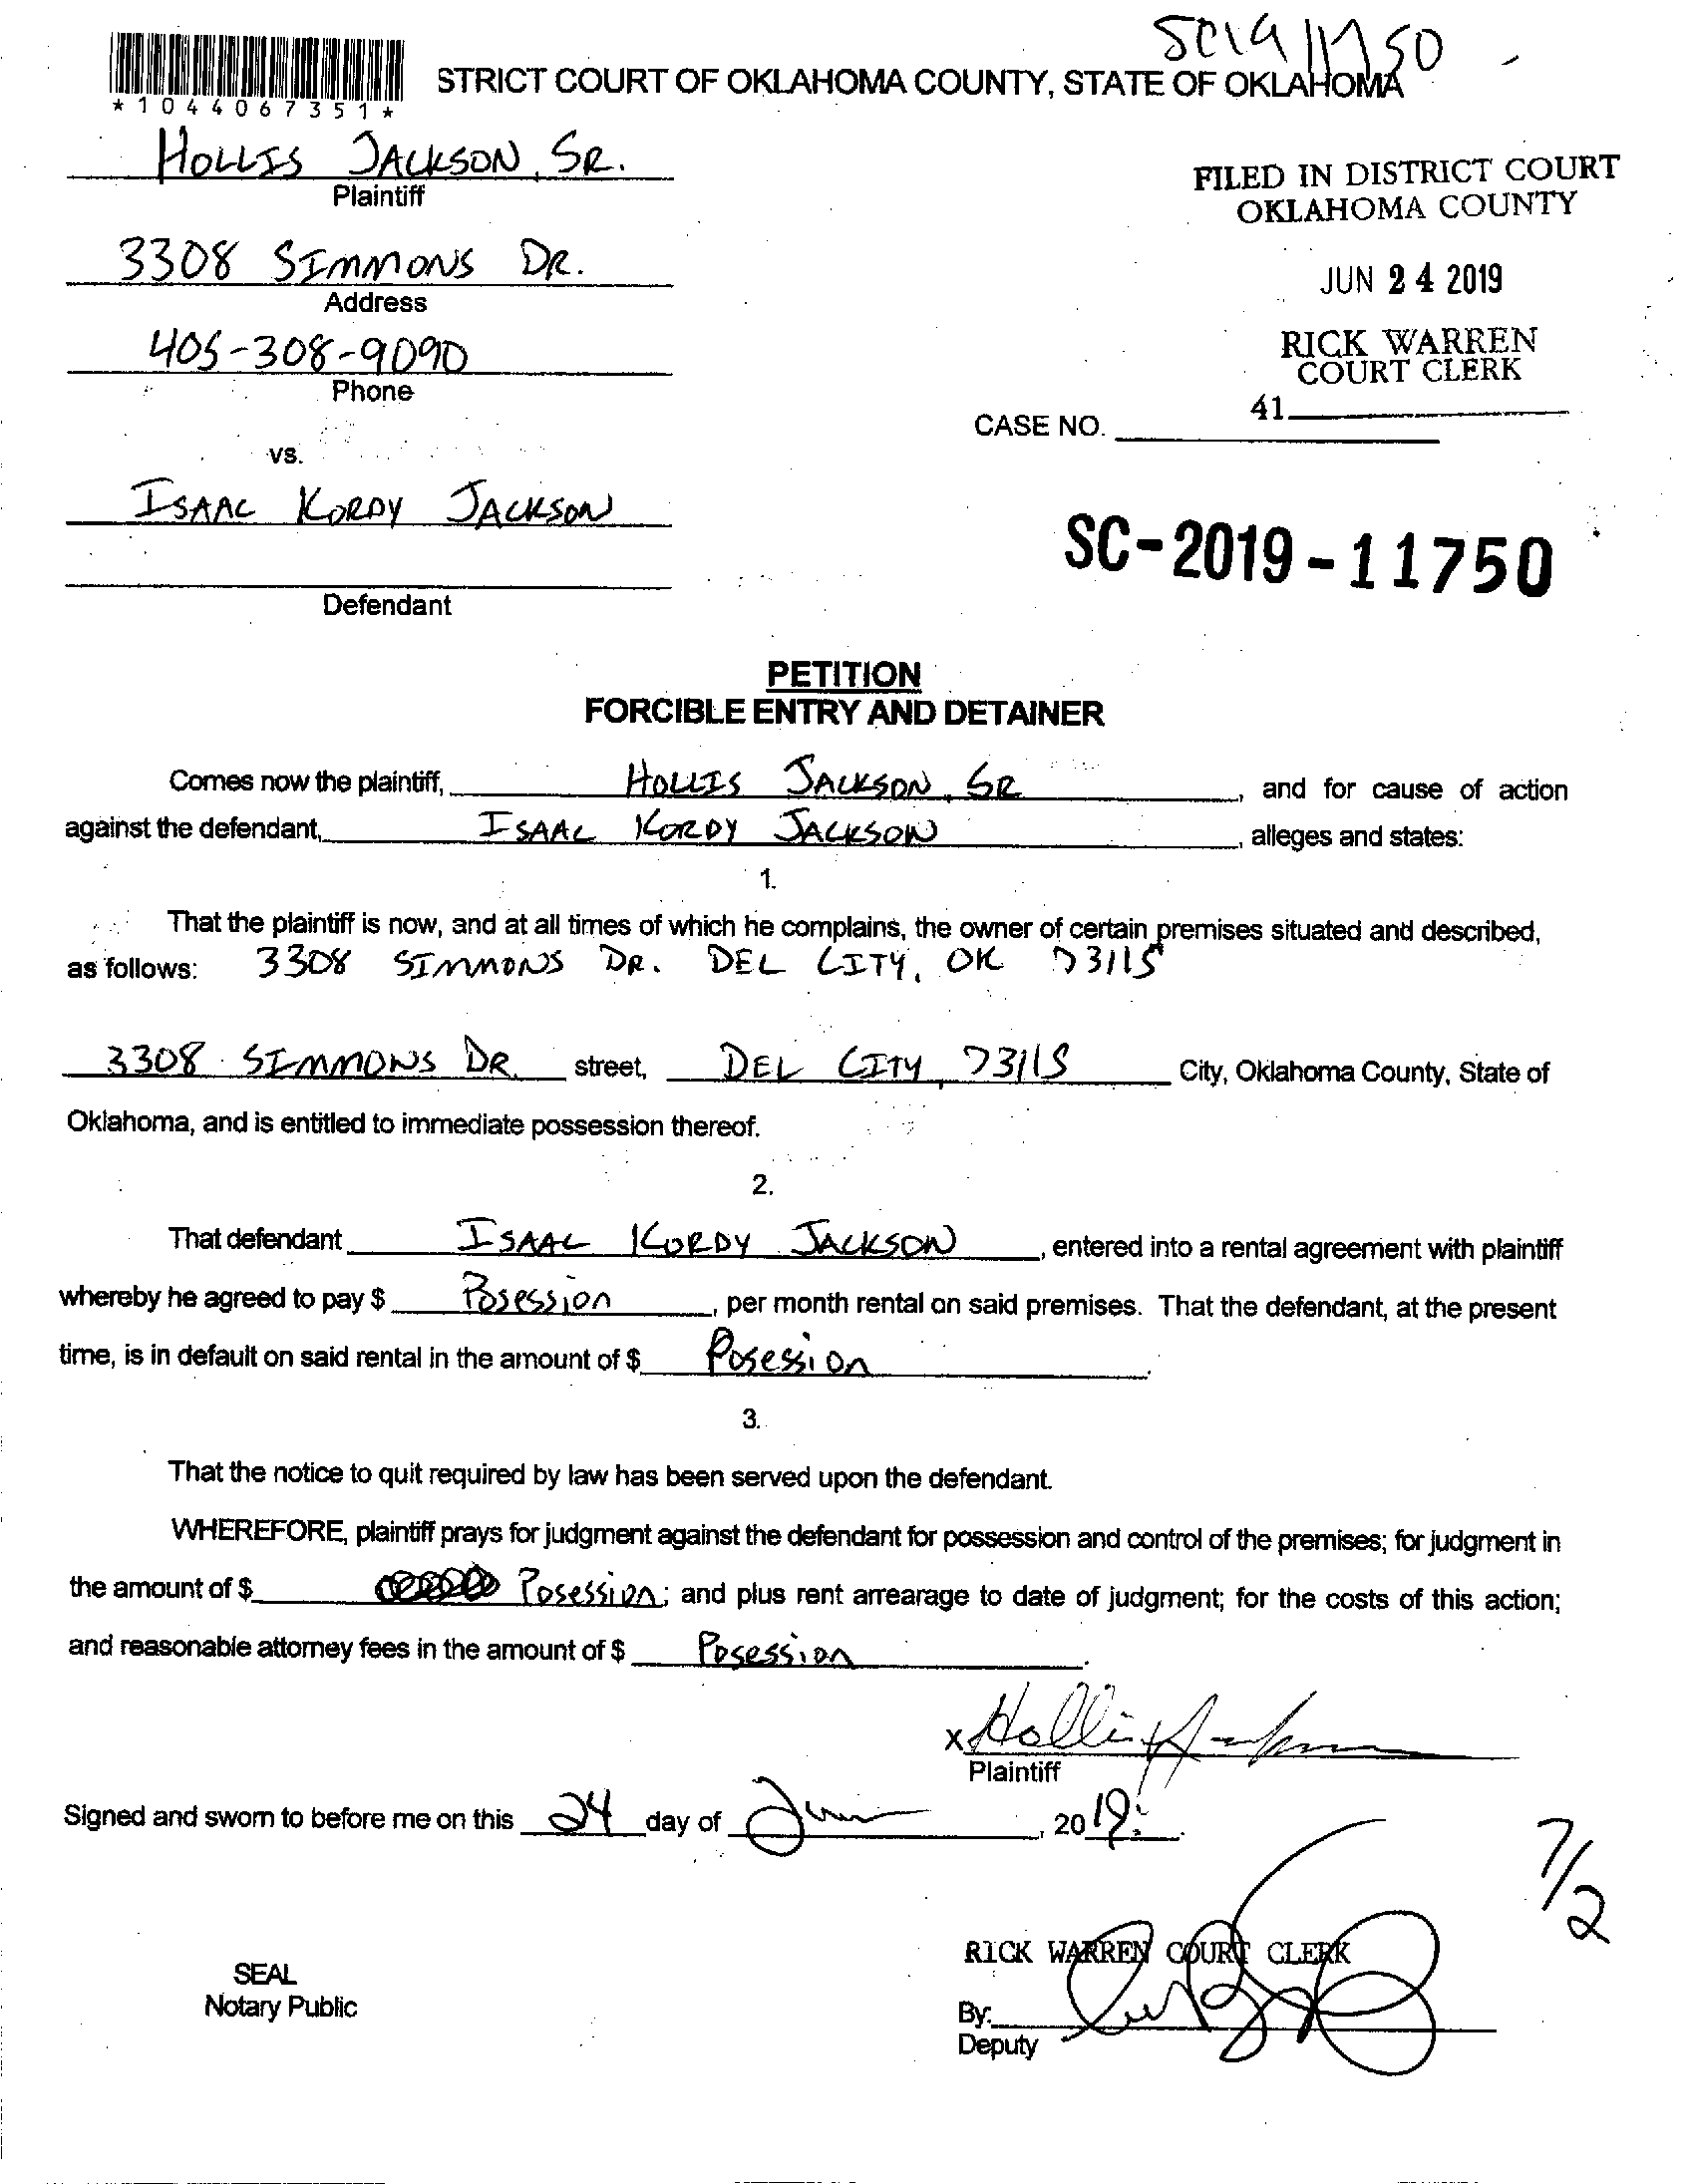 SC19 11750
STRICT COURT OF OKLAHOMA COUNTY, STATE OF OKLAHOMA
*1044067351*
HOLLIS JACKSON, SR.
Plaintiff
FILED IN DISTRICT COURT
OKLAHOMA COUNTY
3308 SIMMONS DR.
Address
JUN 24 2019
405-308-9090
Phone
RICK WARREN
COURT CLERK
41
CASE NO.
vs.
ISAAC KORDY JACKSON
Defendant
SC-2019-11750
PETITION
FORCIBLE ENTRY AND DETAINER
Comes now the plaintiff, HOLLIS JACKSON, SR, and for cause of action
against the defendant, ISAAC KORDY JACKSON, alleges and states:
1.
That the plaintiff is now, and at all times of which he complains, the owner of certain premises situated and described,
as follows: 3308 SIMMONS DR. DEL CITY, OK 73115
3308 SIMMONS DR. street, DEL CITY, 73115 City, Oklahoma County, State of
Oklahoma, and is entitled to immediate possession thereof.
2.
That defendant ISAAC KORDY JACKSON, entered into a rental agreement with plaintiff
whereby he agreed to pay $ Posession, per month rental on said premises. That the defendant, at the present
time, is in default on said rental in the amount of $ Posession.
3.
That the notice to quit required by law has been served upon the defendant.
WHEREFORE, plaintiff prays for judgment against the defendant for possession and control of the premises; for judgment in
the amount of $ Posession; and plus rent arrearage to date of judgment; for the costs of this action;
and reasonable attorney fees in the amount of $ Posession.
x Hollis Jackson
Plaintiff
Signed and sworn to before me on this 24 day of June, 2019.
7/2
RICK WARREN COURT CLERK
SEAL
Notary Public
By:
Deputy